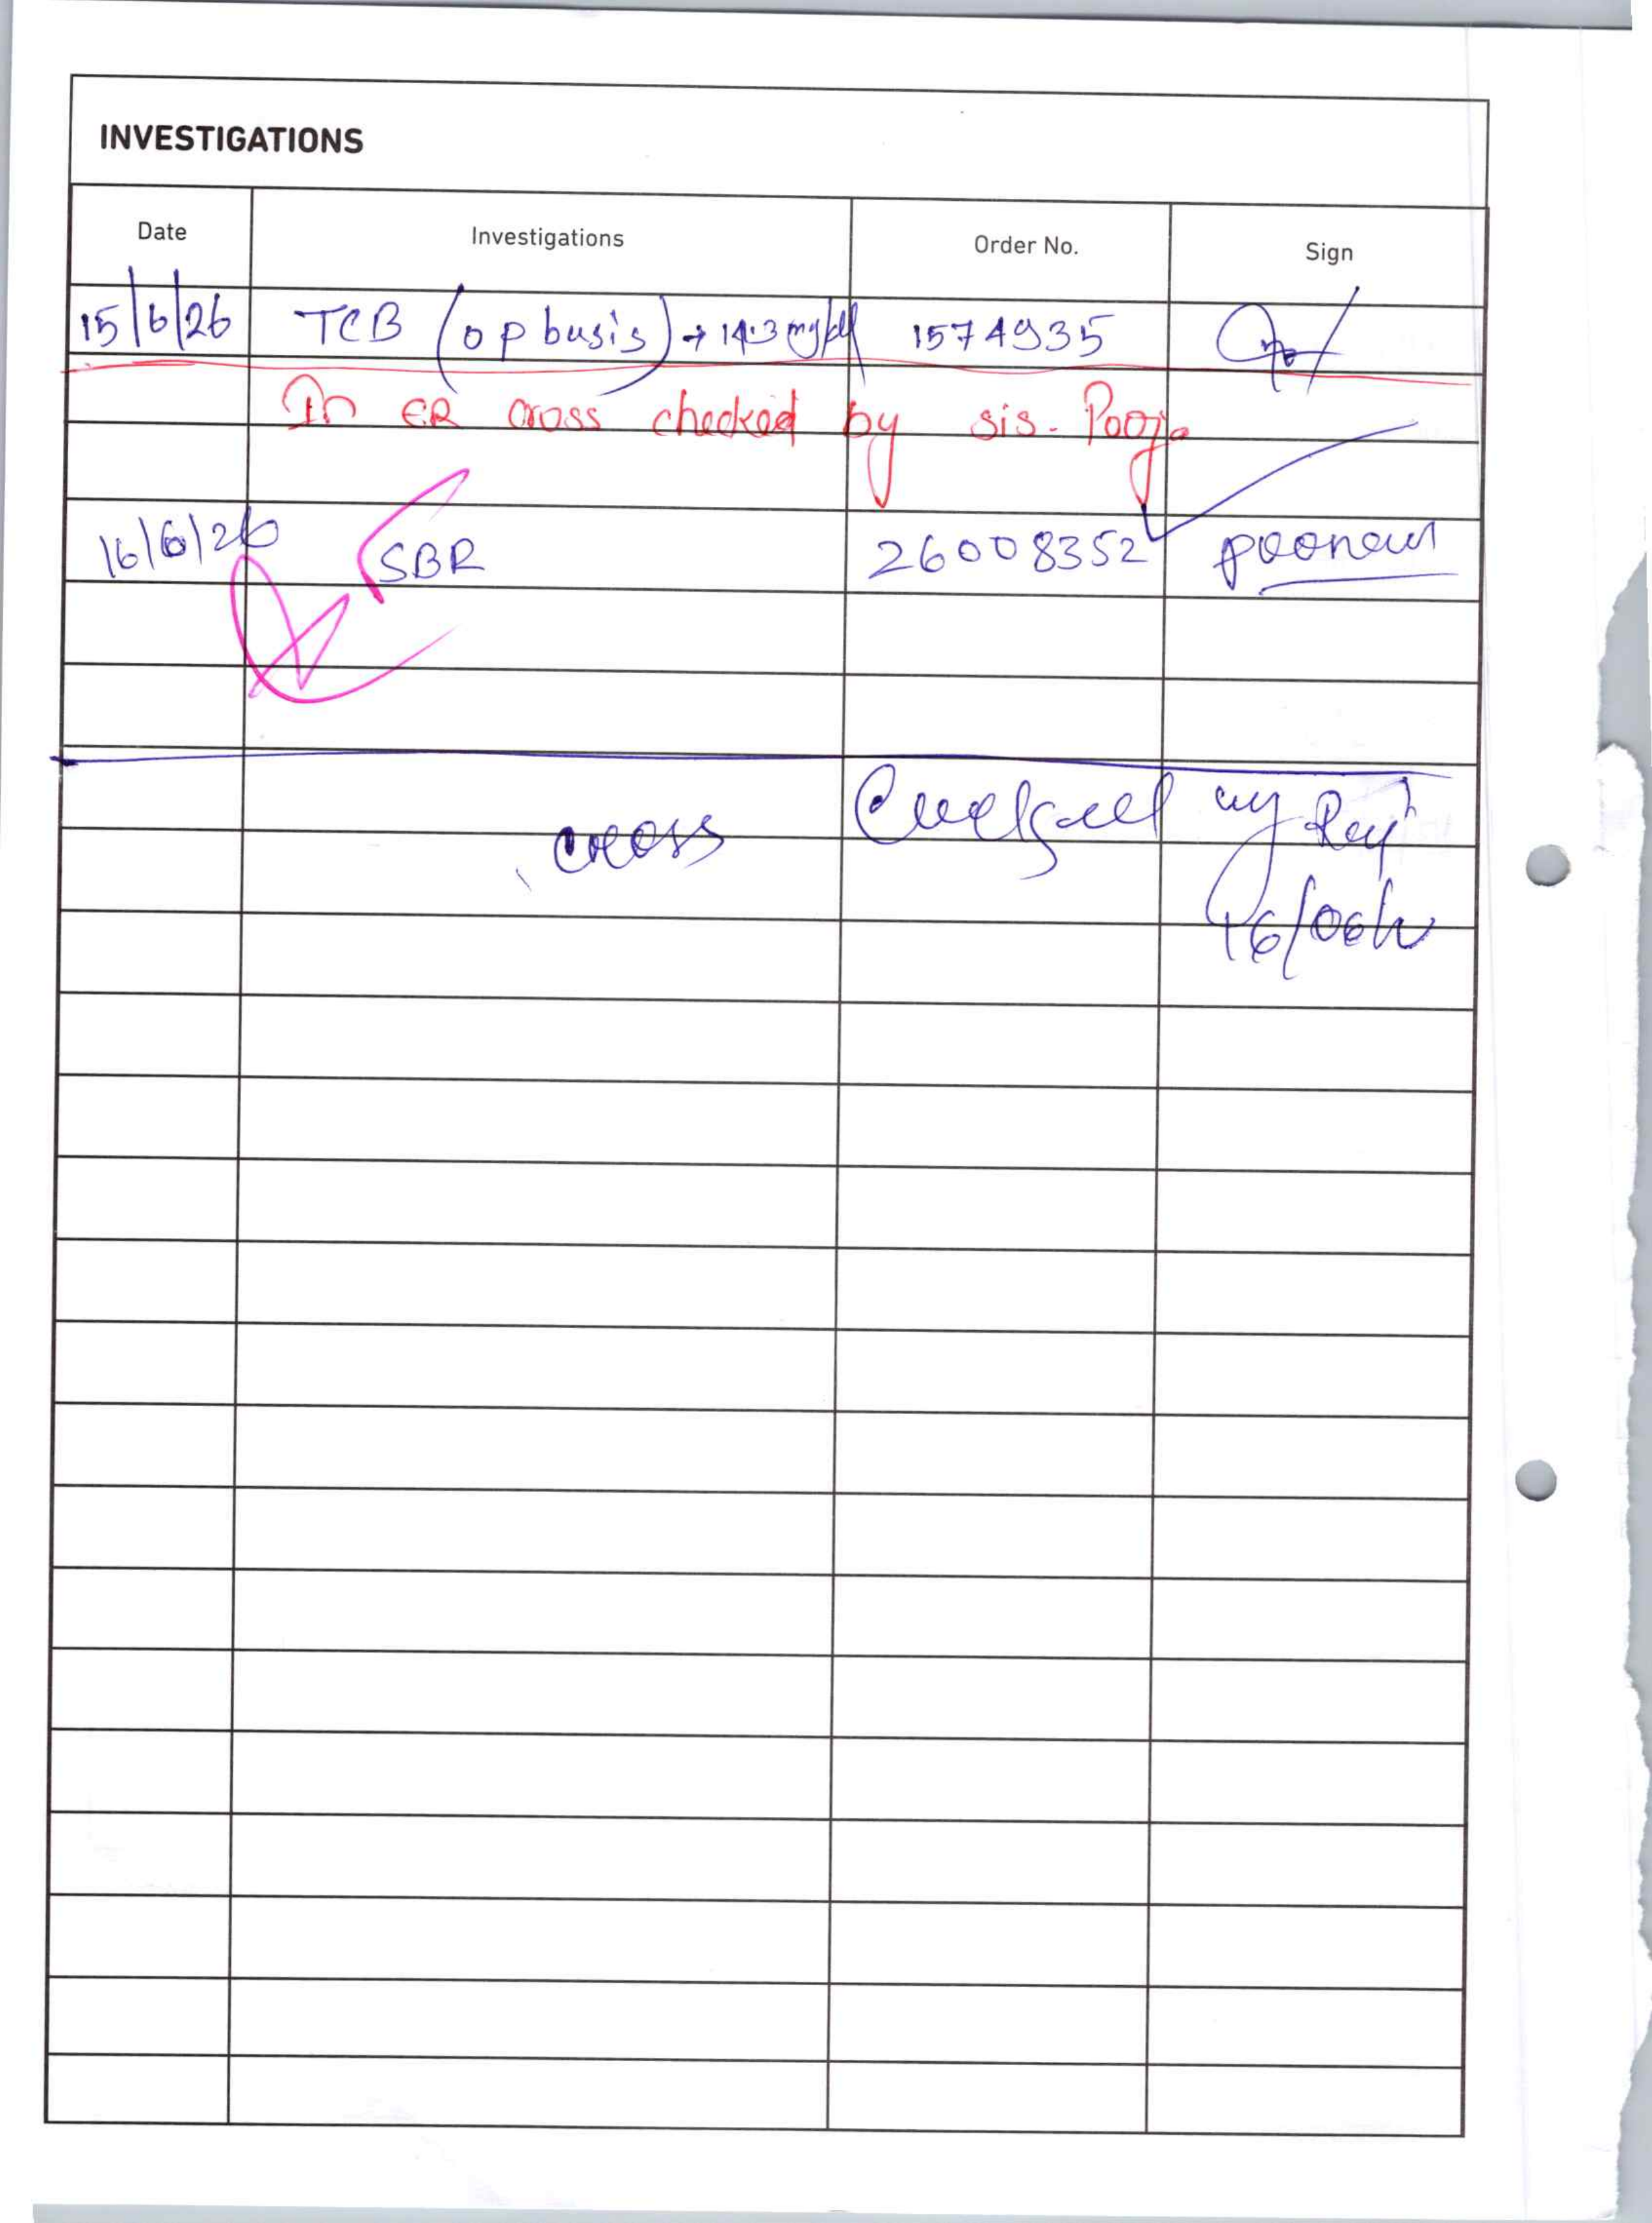 INVESTIGATIONS
Date Investigations Order No. Sign
15/6/26 TCB (op basis) → 14.3 mg/dl 1574935
In ER cross checked by sis. Pooja
16/6/26 SBR 26008352 poonam
cross by